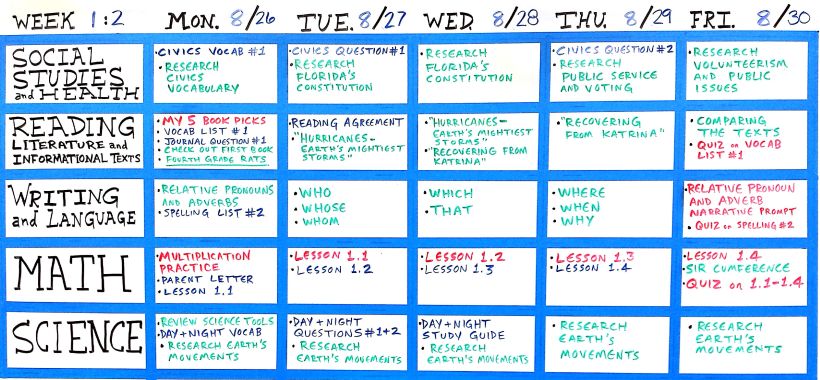 WEEK 1:2 MON. 8/26 TUE. 8/27 WED. 8/28 THU. 8/29 FRI. 8/30
SOCIAL
STUDIES
and HEALTH
• CIVICS VOCAB #1
• RESEARCH
CIVICS
VOCABULARY
• CIVICS QUESTION #1
• RESEARCH
FLORIDA'S
CONSTITUTION
• RESEARCH
FLORIDA'S
CONSTITUTION
• CIVICS QUESTION #2
• RESEARCH
PUBLIC SERVICE
AND VOTING
• RESEARCH
VOLUNTEERISM
AND PUBLIC
ISSUES
READING
LITERATURE and
INFORMATIONAL TEXTS
• MY 5 BOOK PICKS
• VOCAB LIST #1
• JOURNAL QUESTION #1
• CHECK OUT FIRST BOOK
• FOURTH GRADE RATS
• READING AGREEMENT
• "HURRICANES-
EARTH'S MIGHTIEST
STORMS"
• "HURRICANES-
EARTH'S MIGHTIEST
STORMS"
• "RECOVERING FROM
KATRINA"
• "RECOVERING
FROM KATRINA"
• COMPARING
THE TEXTS
• QUIZ on VOCAB
LIST #1
WRITING
and LANGUAGE
• RELATIVE PRONOUNS
AND ADVERBS
• SPELLING LIST #2
• WHO
• WHOSE
• WHOM
• WHICH
• THAT
• WHERE
• WHEN
• WHY
• RELATIVE PRONOUN
AND ADVERB
NARRATIVE PROMPT
• QUIZ on SPELLING #2
MATH
• MULTIPLICATION
PRACTICE
• PARENT LETTER
• LESSON 1.1
• LESSON 1.1
• LESSON 1.2
• LESSON 1.2
• LESSON 1.3
• LESSON 1.3
• LESSON 1.4
• LESSON 1.4
• SIR CUMFERENCE
• QUIZ on 1.1-1.4
SCIENCE
• REVIEW SCIENCE TOOLS
• DAY+NIGHT VOCAB
• RESEARCH EARTH'S
MOVEMENTS
• DAY+NIGHT
QUESTIONS #1+2
• RESEARCH
EARTH'S MOVEMENTS
• DAY+NIGHT
STUDY GUIDE
• RESEARCH
EARTH'S MOVEMENTS
• RESEARCH
EARTH'S
MOVEMENTS
• RESEARCH
EARTH'S
MOVEMENTS